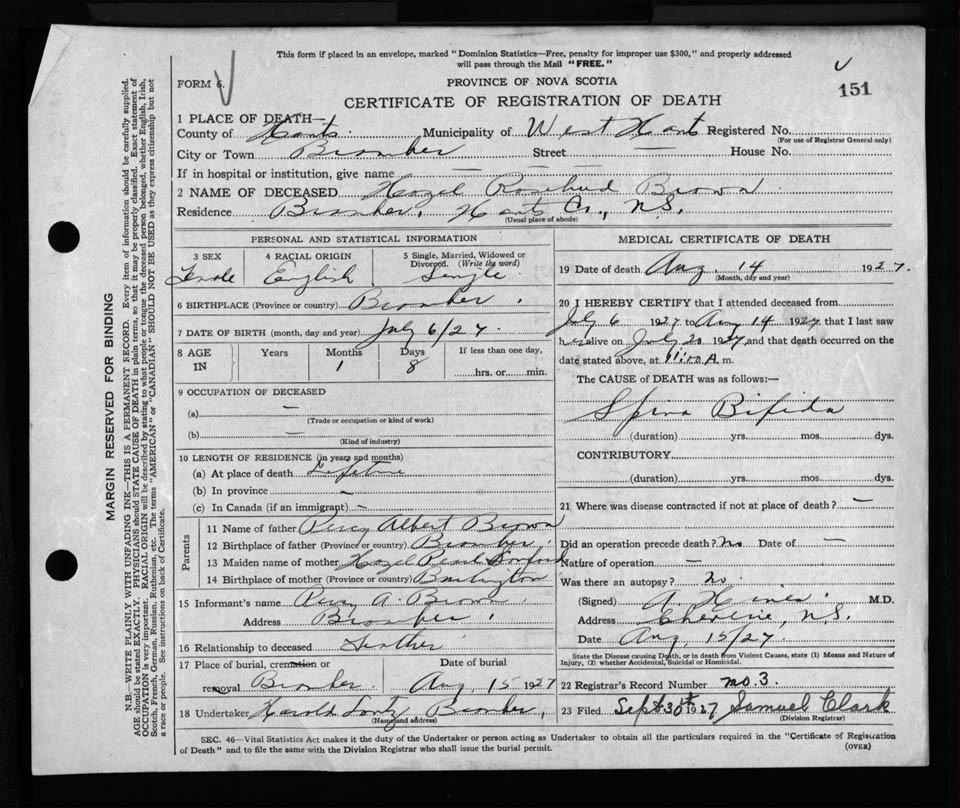 This form if placed in an envelope, marked "Dominion Statistics—Free, penalty for improper use $300," and properly addressed
will pass through the Mail "FREE."
FORM 6.
PROVINCE OF NOVA SCOTIA
151
CERTIFICATE OF REGISTRATION OF DEATH
1 PLACE OF DEATH—
County of Hants Municipality of West Hants Registered No.
(For use of Registrar General only)
City or Town Bramber Street — House No.
If in hospital or institution, give name —
2 NAME OF DECEASED Hazel Rosebud Brown
Residence Bramber, Hants Co., N.S.
(Usual place of abode)
PERSONAL AND STATISTICAL INFORMATION
3 SEX 4 RACIAL ORIGIN 5 Single, Married, Widowed or
Divorced. (Write the word)
Female English Single
6 BIRTHPLACE (Province or country) Bramber
7 DATE OF BIRTH (month, day and year) July 6/27
8 AGE Years Months Days If less than one day,
IN 1 8 hrs. or min.
9 OCCUPATION OF DECEASED
(a) —
(Trade or occupation or kind of work)
(b) —
(Kind of industry)
10 LENGTH OF RESIDENCE (in years and months)
(a) At place of death Lifetime
(b) In province —
(c) In Canada (if an immigrant) —
Parents
11 Name of father Percy Albert Brown
12 Birthplace of father (Province or country) Bramber
13 Maiden name of mother Hazel Pearl Sanford
14 Birthplace of mother (Province or country) Burlington
15 Informant's name Percy A. Brown
Address Bramber
16 Relationship to deceased Father
17 Place of burial, cremation or Date of burial
removal Bramber Aug 15 1927
18 Undertaker Harold Lontz Bramber,
(Name and address)
MEDICAL CERTIFICATE OF DEATH
19 Date of death Aug 14 1927.
(Month, day and year)
20 I HEREBY CERTIFY that I attended deceased from
July 6 1927 to Aug 14 1927 that I last saw
h alive on July 20 1927, and that death occurred on the
date stated above, at A m.
The CAUSE of DEATH was as follows:—
Spina Bifida
(duration) yrs. mos. dys.
CONTRIBUTORY.
(duration) yrs. mos. dys.
21 Where was disease contracted if not at place of death? —
Did an operation precede death? no Date of —
Nature of operation —
Was there an autopsy? no
(Signed) A. Hines M.D.
Address Cheverie, N.S.
Date Aug 15/27
State the Disease causing Death, or in death from Violent Causes, state (1) Means and Nature of
Injury, (2) whether Accidental, Suicidal or Homicidal.
22 Registrar's Record Number no. 3.
23 Filed Sept 30th 1927 Samuel Clark
(Division Registrar)
SEC. 46—Vital Statistics Act makes it the duty of the Undertaker or person acting as Undertaker to obtain all the particulars required in the "Certificate of Registration
of Death" and to file the same with the Division Registrar who shall issue the burial permit.
(OVER)
MARGIN RESERVED FOR BINDING
N.B.—WRITE PLAINLY WITH UNFADING INK—THIS IS A PERMANENT RECORD. Every item of information should be carefully supplied.
AGE should be stated EXACTLY. PHYSICIANS should STATE CAUSE OF DEATH in plain terms, so that it may be properly classified. Exact statement of
OCCUPATION is very important. RACIAL ORIGIN will be described by stating to what people or tongue the deceased person belonged, whether English, Irish,
Scotch, French, German, Russian, Ruthenian, etc. The terms "AMERICAN" or "CANADIAN" SHOULD NOT BE USED as they express citizenship but not
a race or people. See instructions on back of Certificate.